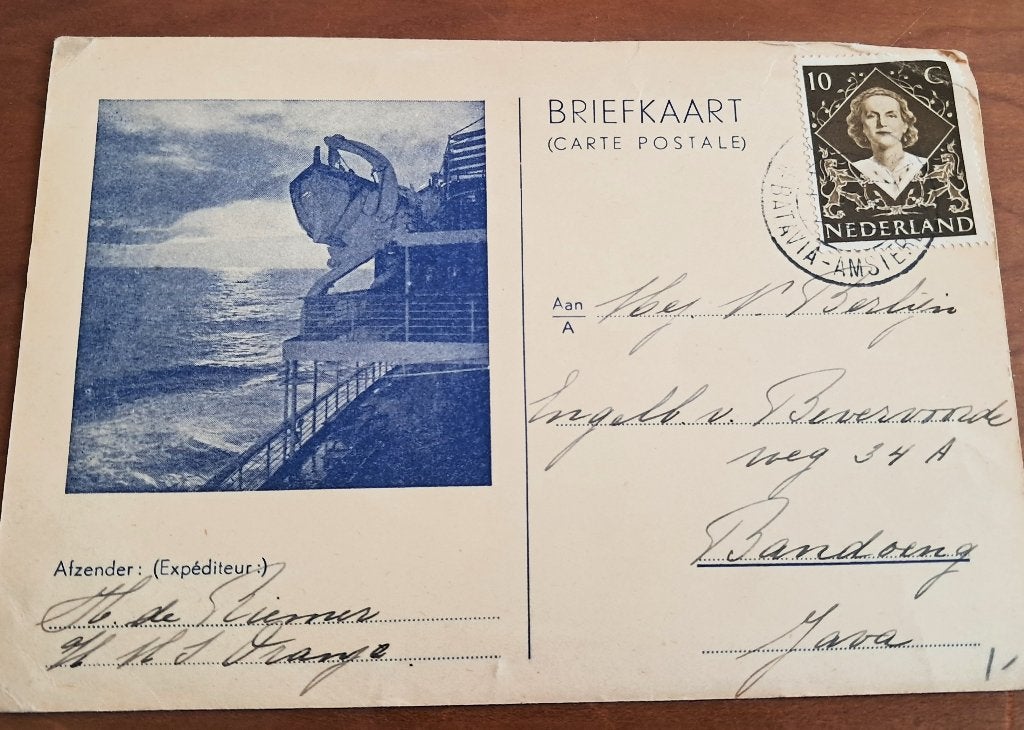 BRIEFKAART
(CARTE POSTALE)
10 C
NEDERLAND
BATAVIA-AMSTER
Aan
A
Mej. V. Berlijn
Engelb. v. Bevervoorde
weg 34 A
Bandoeng
Java
Afzender: (Expéditeur:)
H. de Riemer
Oranje